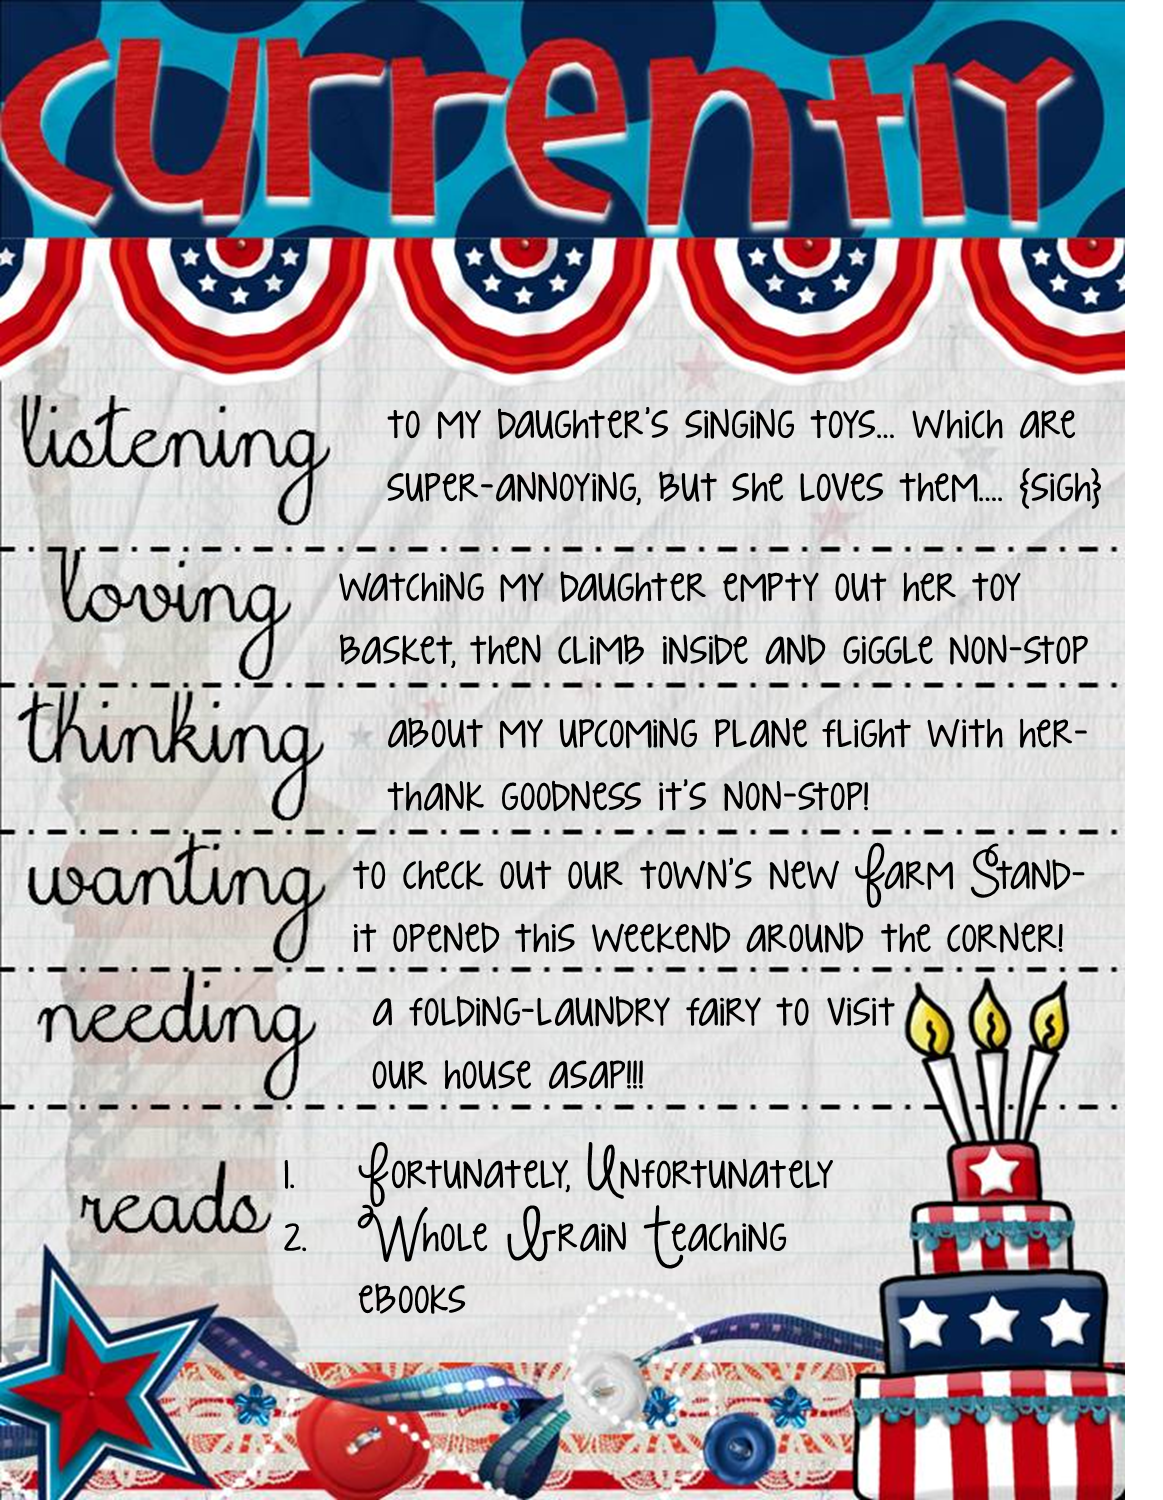 currently
listening
to my daughter's singing toys... which are
super-annoying, but she loves them.... {sigh}
loving
watching my daughter empty out her toy
basket, then climb inside and giggle non-stop
thinking
about my upcoming plane flight with her-
thank goodness it's non-stop!
wanting
to check out our town's new Farm Stand-
it opened this weekend around the corner!
needing
a folding-laundry fairy to visit
our house asap!!!
reads
1. Fortunately, Unfortunately
2. Whole Brain Teaching
ebooks